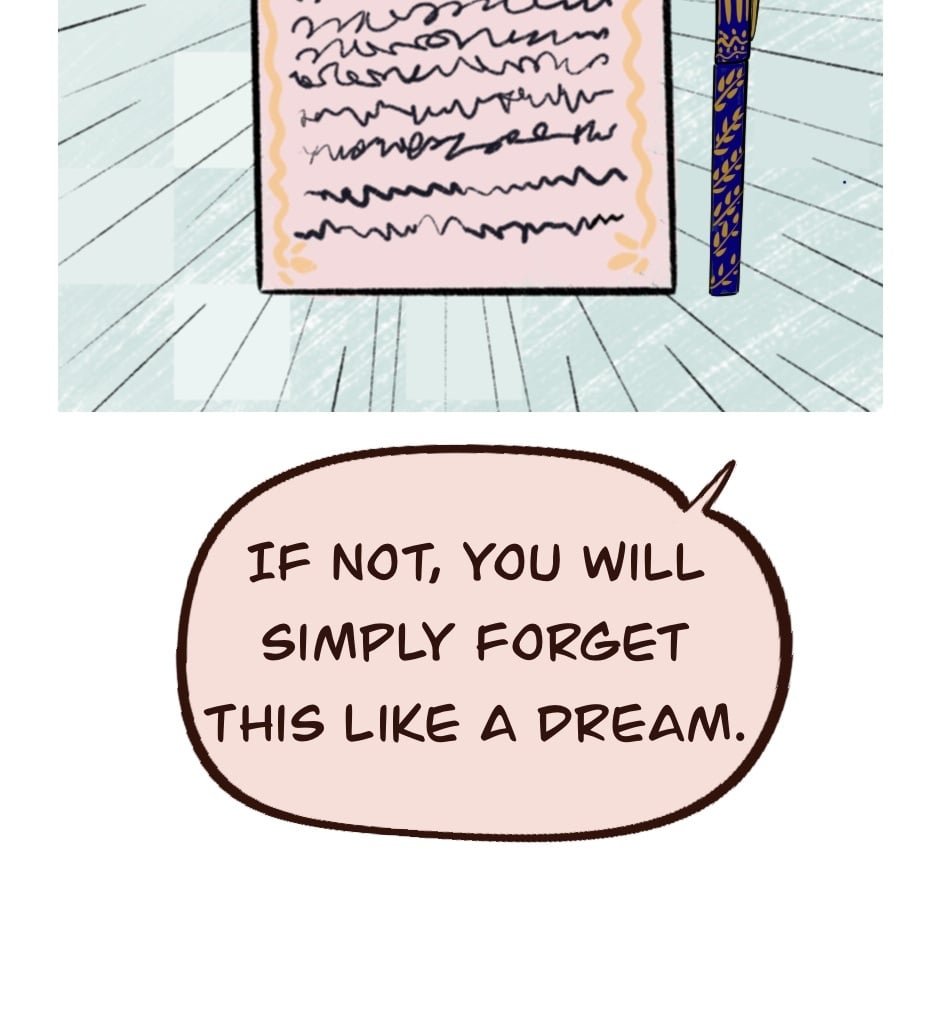 IF NOT, YOU WILL
SIMPLY FORGET
THIS LIKE A DREAM.